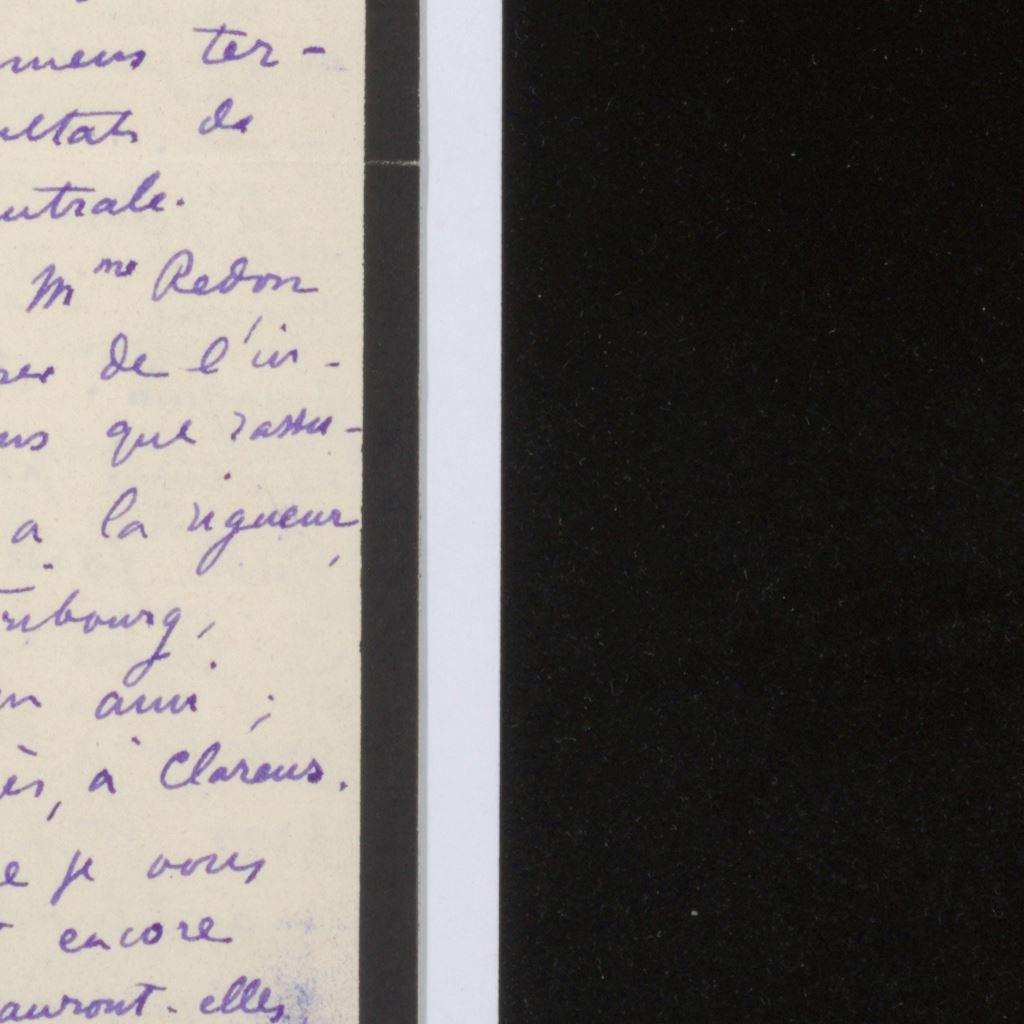 mens ter-
ultats de
entrale.
Mme Redon
ser de l'in-
ous que rassu-
a la rigueur
Fribourg,
en ami ;
ès, à Clarens.
e je vous
encore
auront-elles